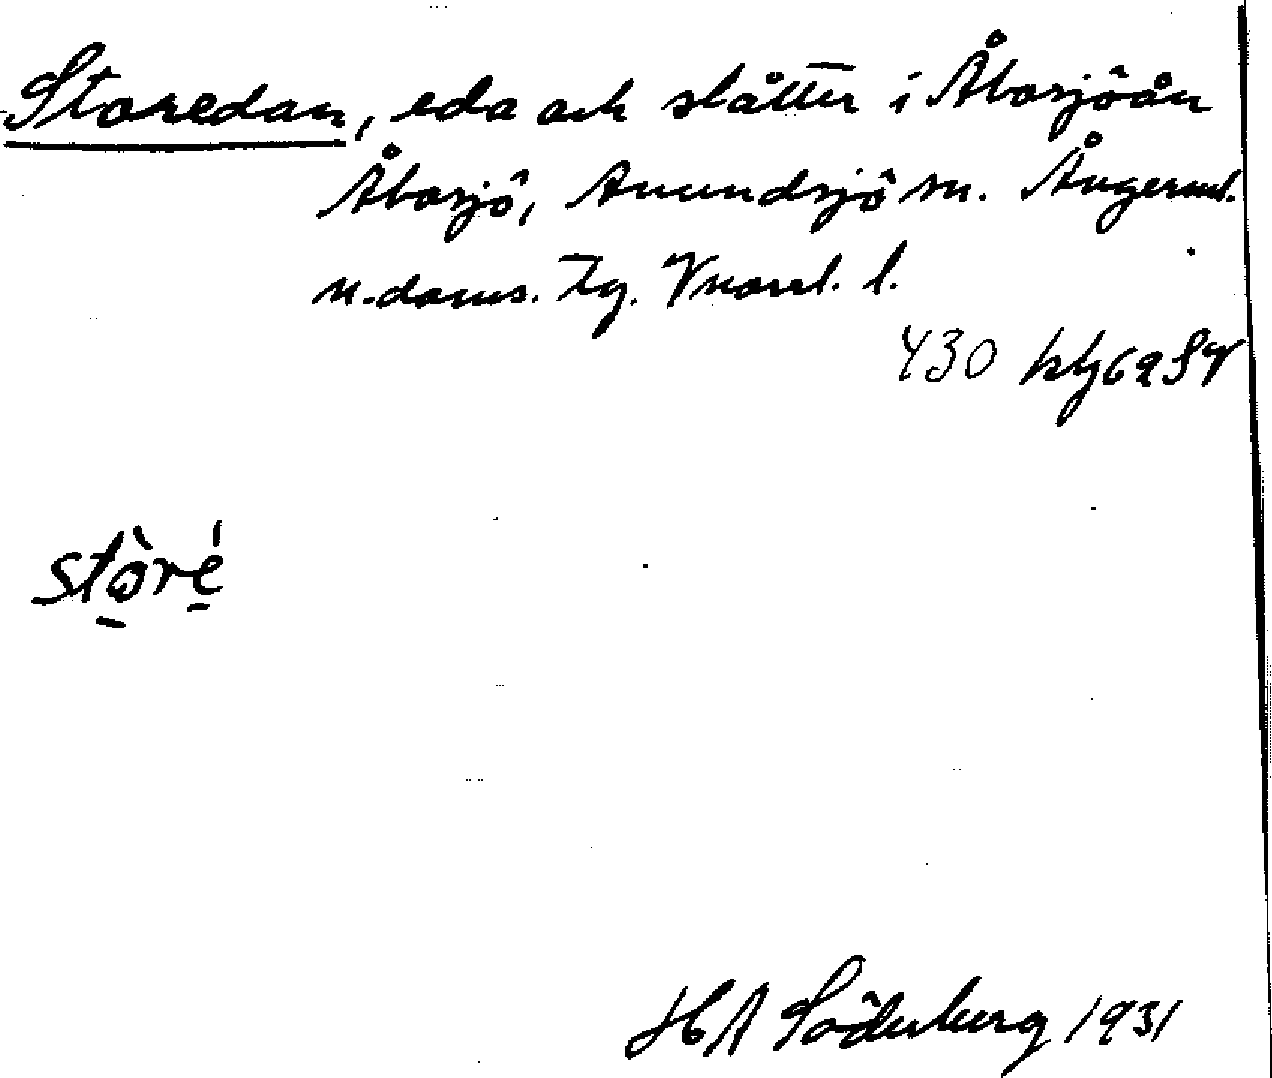 Storedan, eda och slåtter i Åbosjöån
Åbosjö, Anundsjö sn. Ångerml.
n.doms. Tg. Vnorrl. l.
430
stòré
HA Söderberg 1931